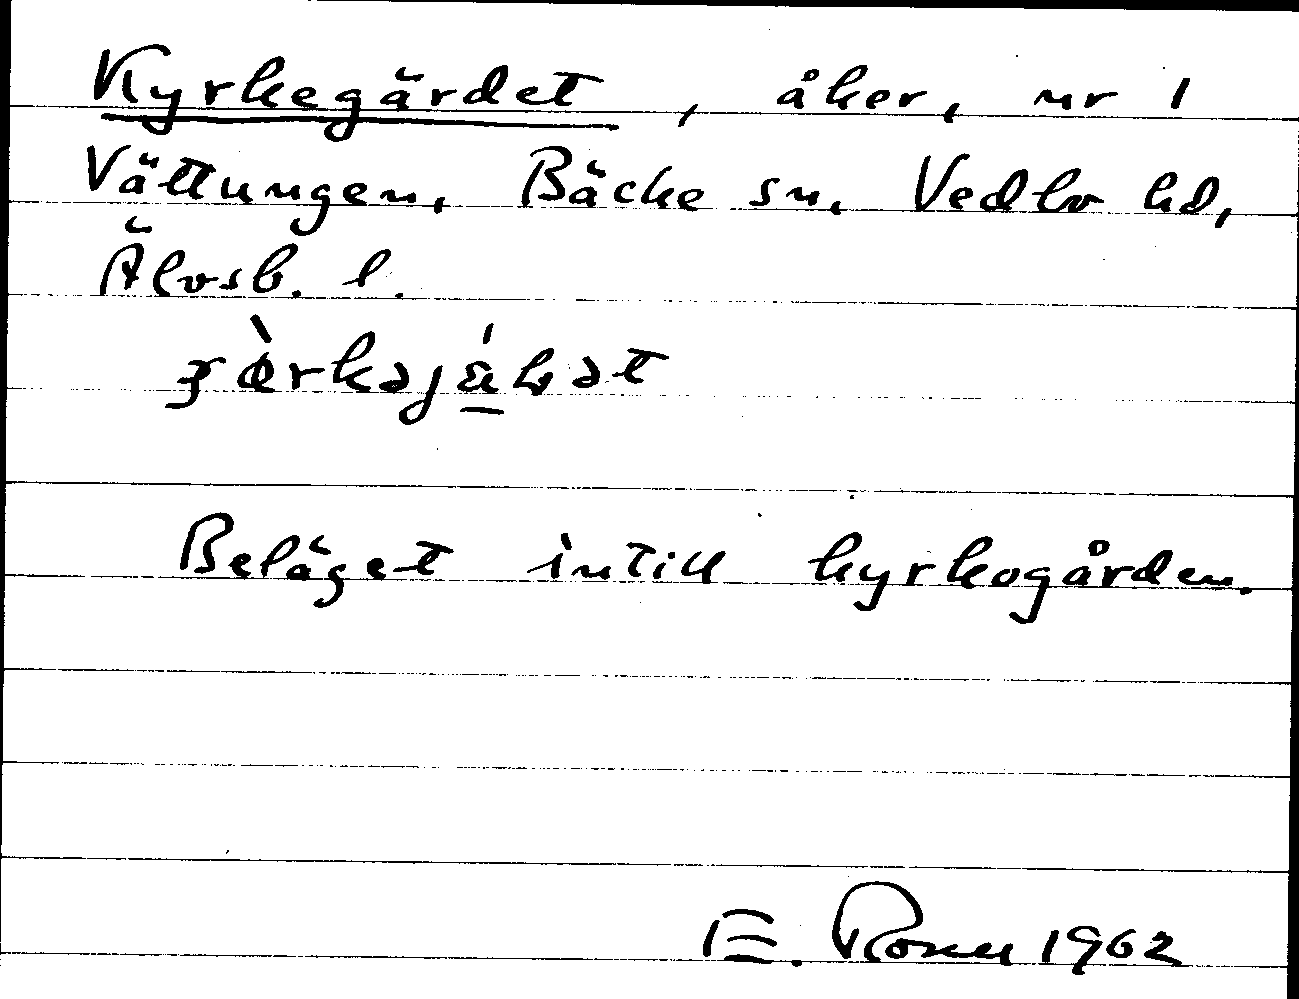 Kyrkegärdet, åker, nr 1
Vättungen, Bäcke sn, Vedbo hd,
Älvsb. l.
Beläget intill kyrkogården.
E. 1962